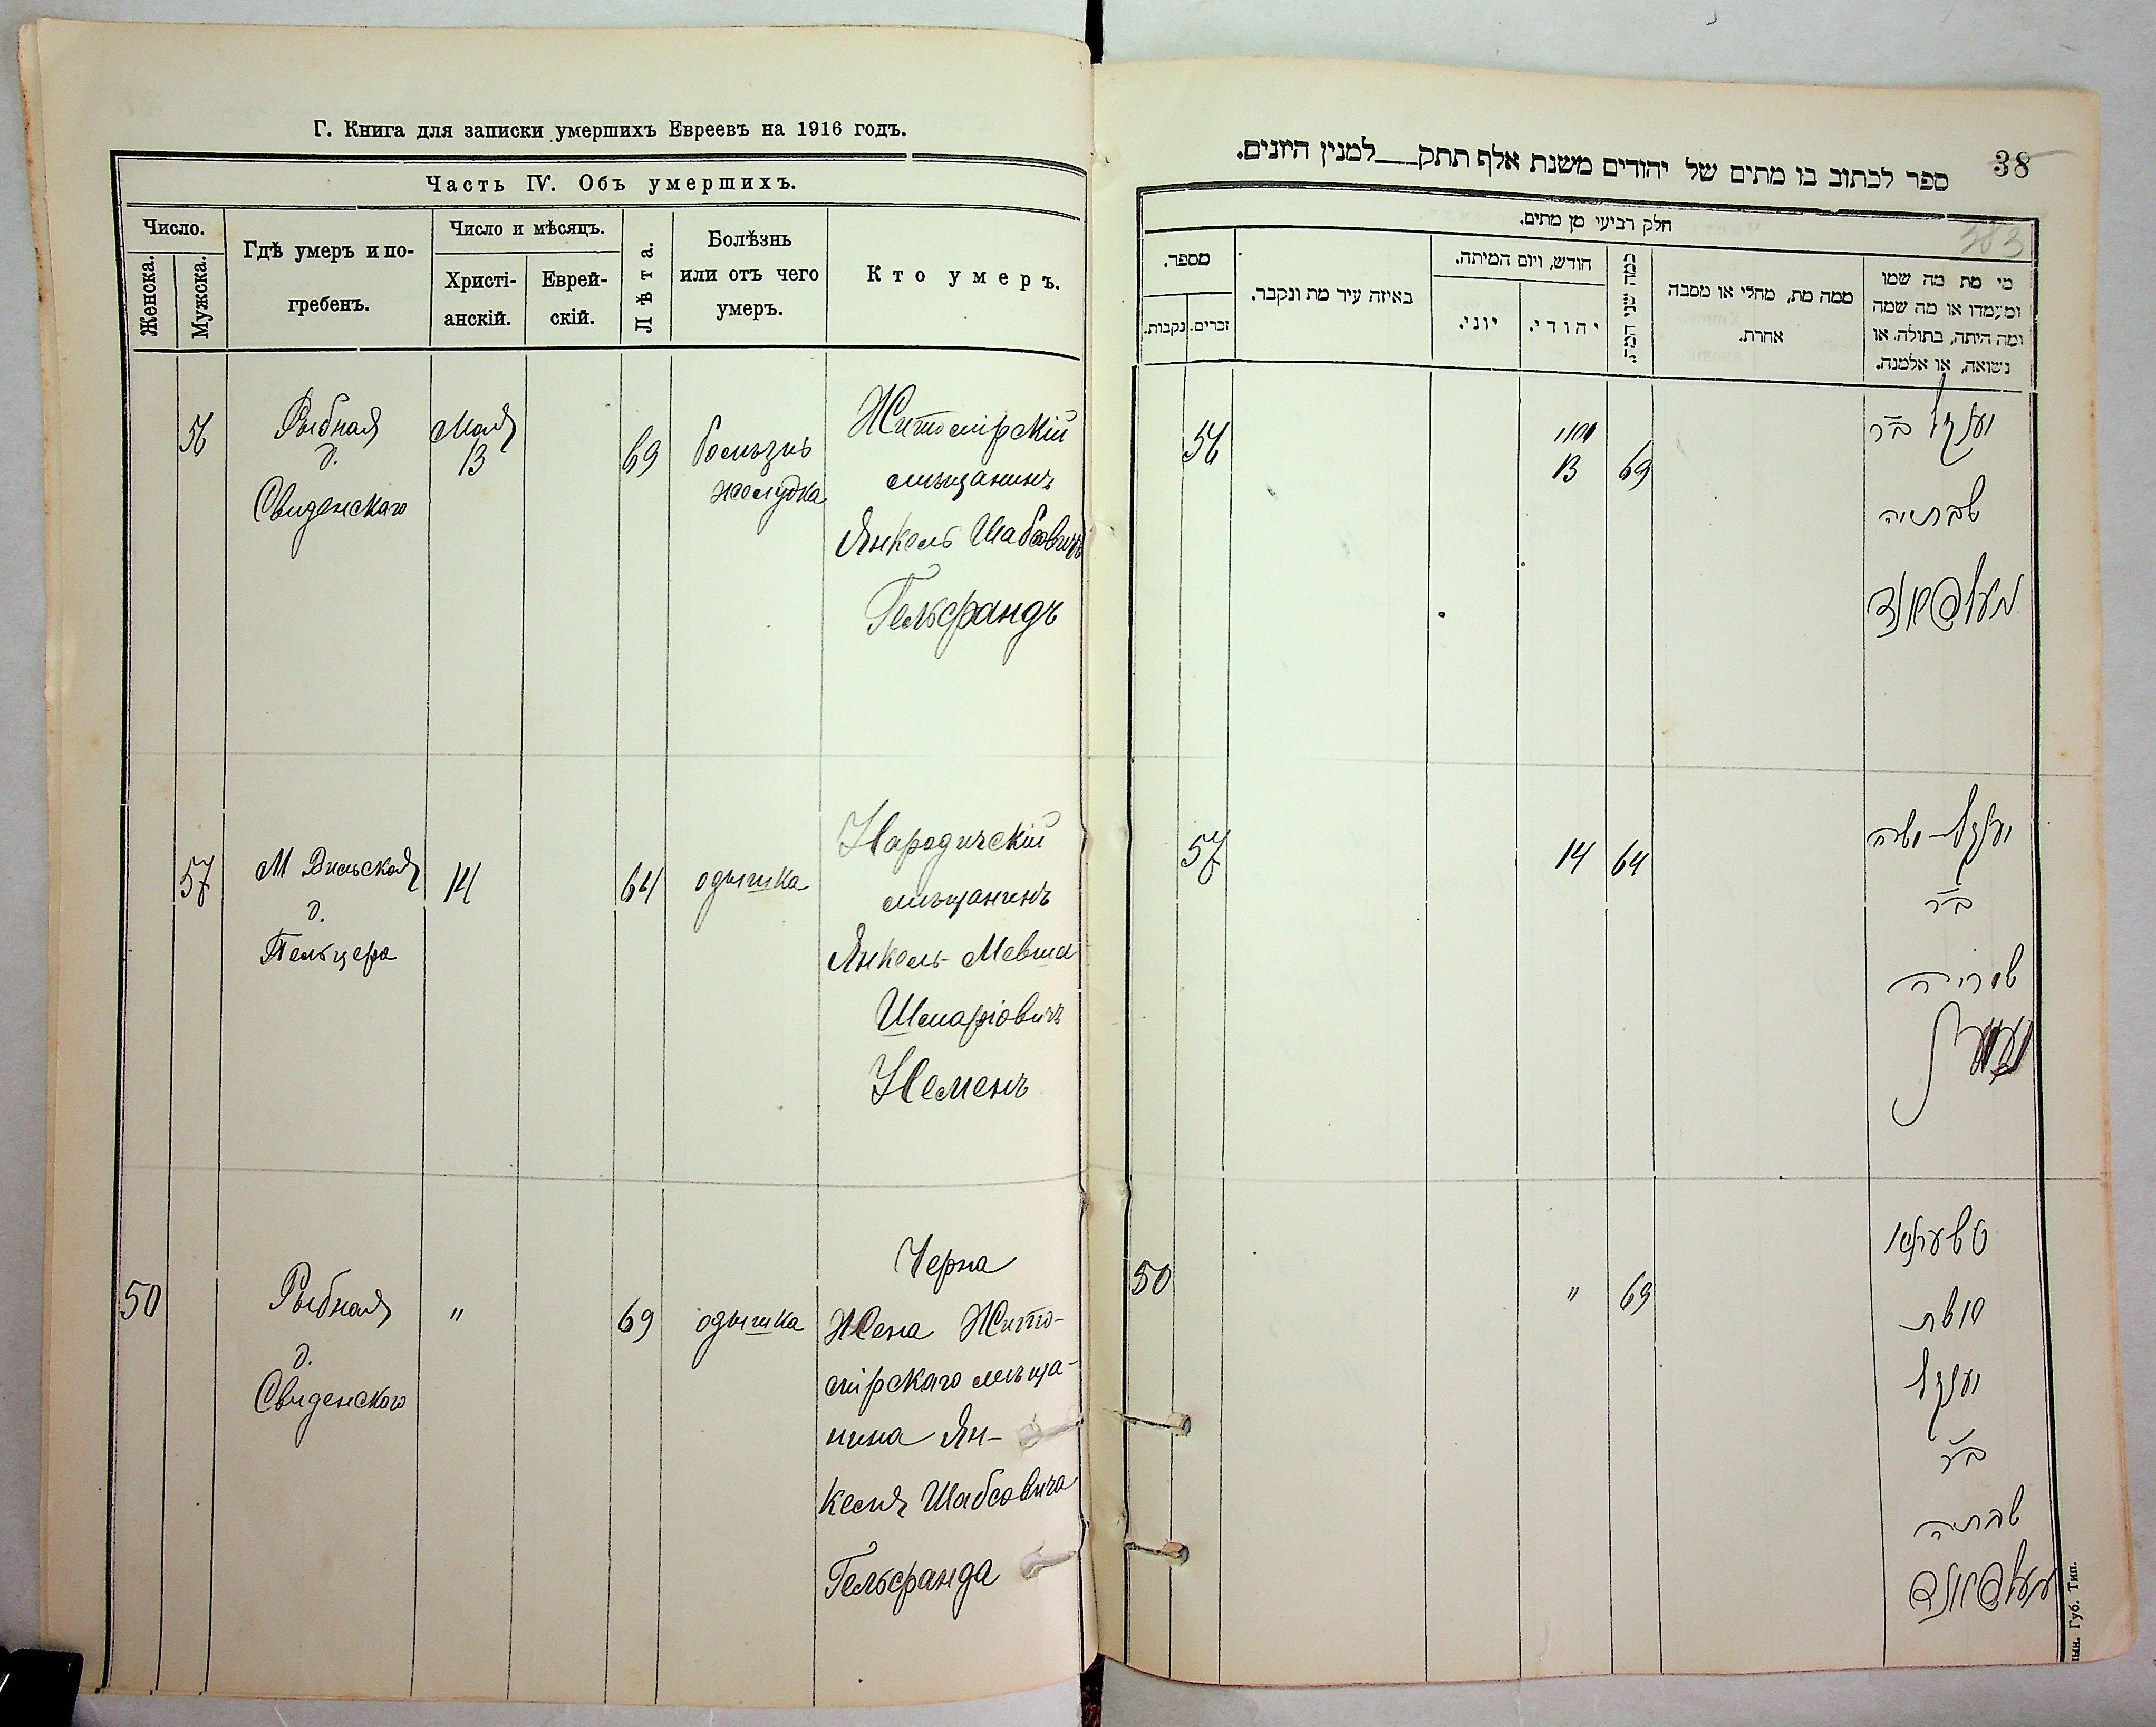 Г. Книга для записки умершихъ Евреевъ на 1916 годъ.
Часть IV. Объ умершихъ.
Число.
Женска.
Мужска.
Гдѣ умеръ и по-
гребенъ.
Число и мѣсяцъ.
Христі-
анскій.
Еврей-
скій.
Лѣта.
Болѣзнь
или отъ чего
умеръ.
Кто умеръ.
56
Рыбная
д.
Свиденскаго
Мая
13
69
болѣзнь
желудка
Житомірскій
мѣщанинъ
Янкель Шабсовичъ
Гельфандъ
57
М Вильская
д.
Пельцера
14
64
одышка
Народичскій
мѣщанинъ
Янкель-Мевша
Шмаріовичъ
Неменъ
50
Рыбная
д.
Свиденскаго
"
69
одышка
Черна
Жена Жито-
мірскаго мѣща-
нина Ян-
келя Шабсовича
Гельфанда
38
383
ספר לכתוב בו מתים של יהודים משנת אלף תתק__למנין היונים.
חלק רביעי מן מתים.
מספר.
זכרים.
נקבות.
באיזה עיר מת ונקבר.
חודש, ויום המיתה.
יוני.
יהודי.
כמה שני המת.
ממה מת, מחלי או מסבה
אחרת.
מי מת מה שמו
ומעמדו או מה שמה
ומה היתה, בתולה, או
נשואה, או אלמנה.
56
מאי
13
69
יענקל ב״ר
שבתיה
געלפאנד
57
14
64
יענקל-משה
ב״ר
שמריה
50
"
69
טשערנא
אשת
יענקל
ב״ר
שבתיה
געלפאנד
ын. Губ. Тип.